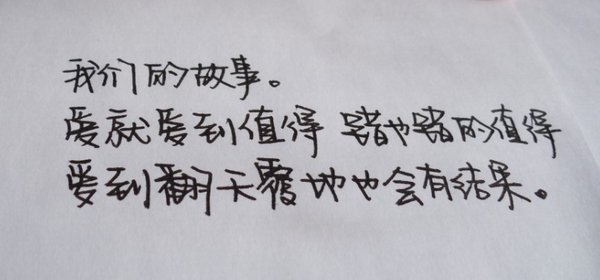 我们的故事。
爱就爱到值得 错也错的值得
爱到翻天覆地也会有结果。